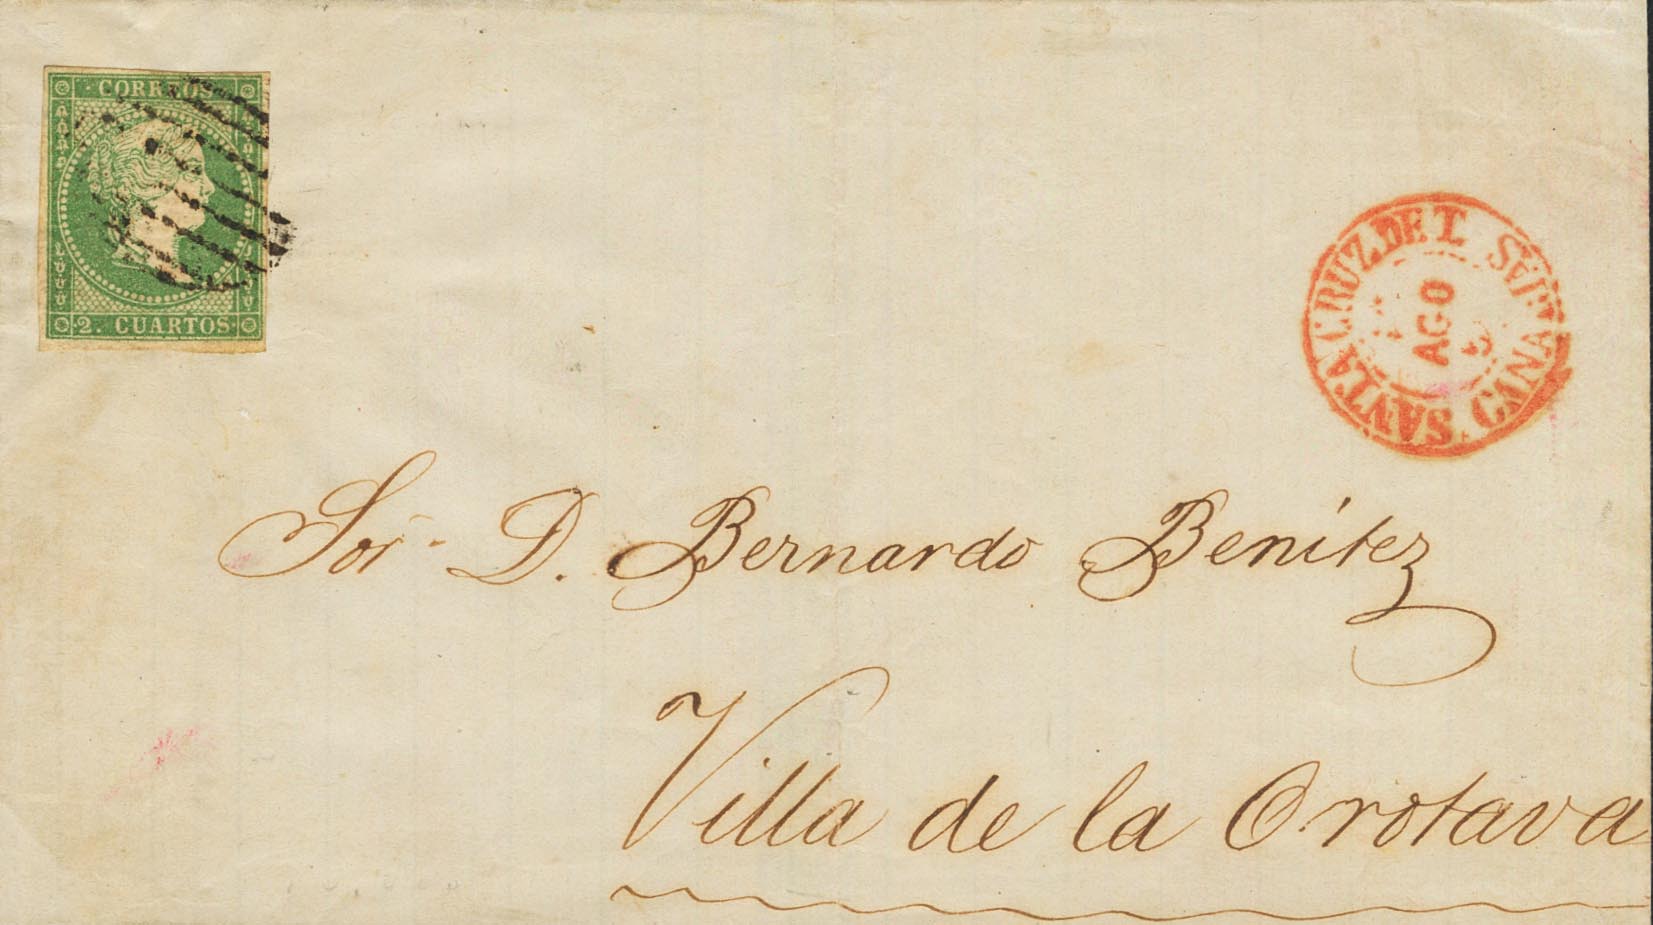 CORREOS
2. CUARTOS
SANTA CRUZ DE T.
SANS. CANARIAS
AGO
Sor. D. Bernardo Benítez
Villa de la Orotava